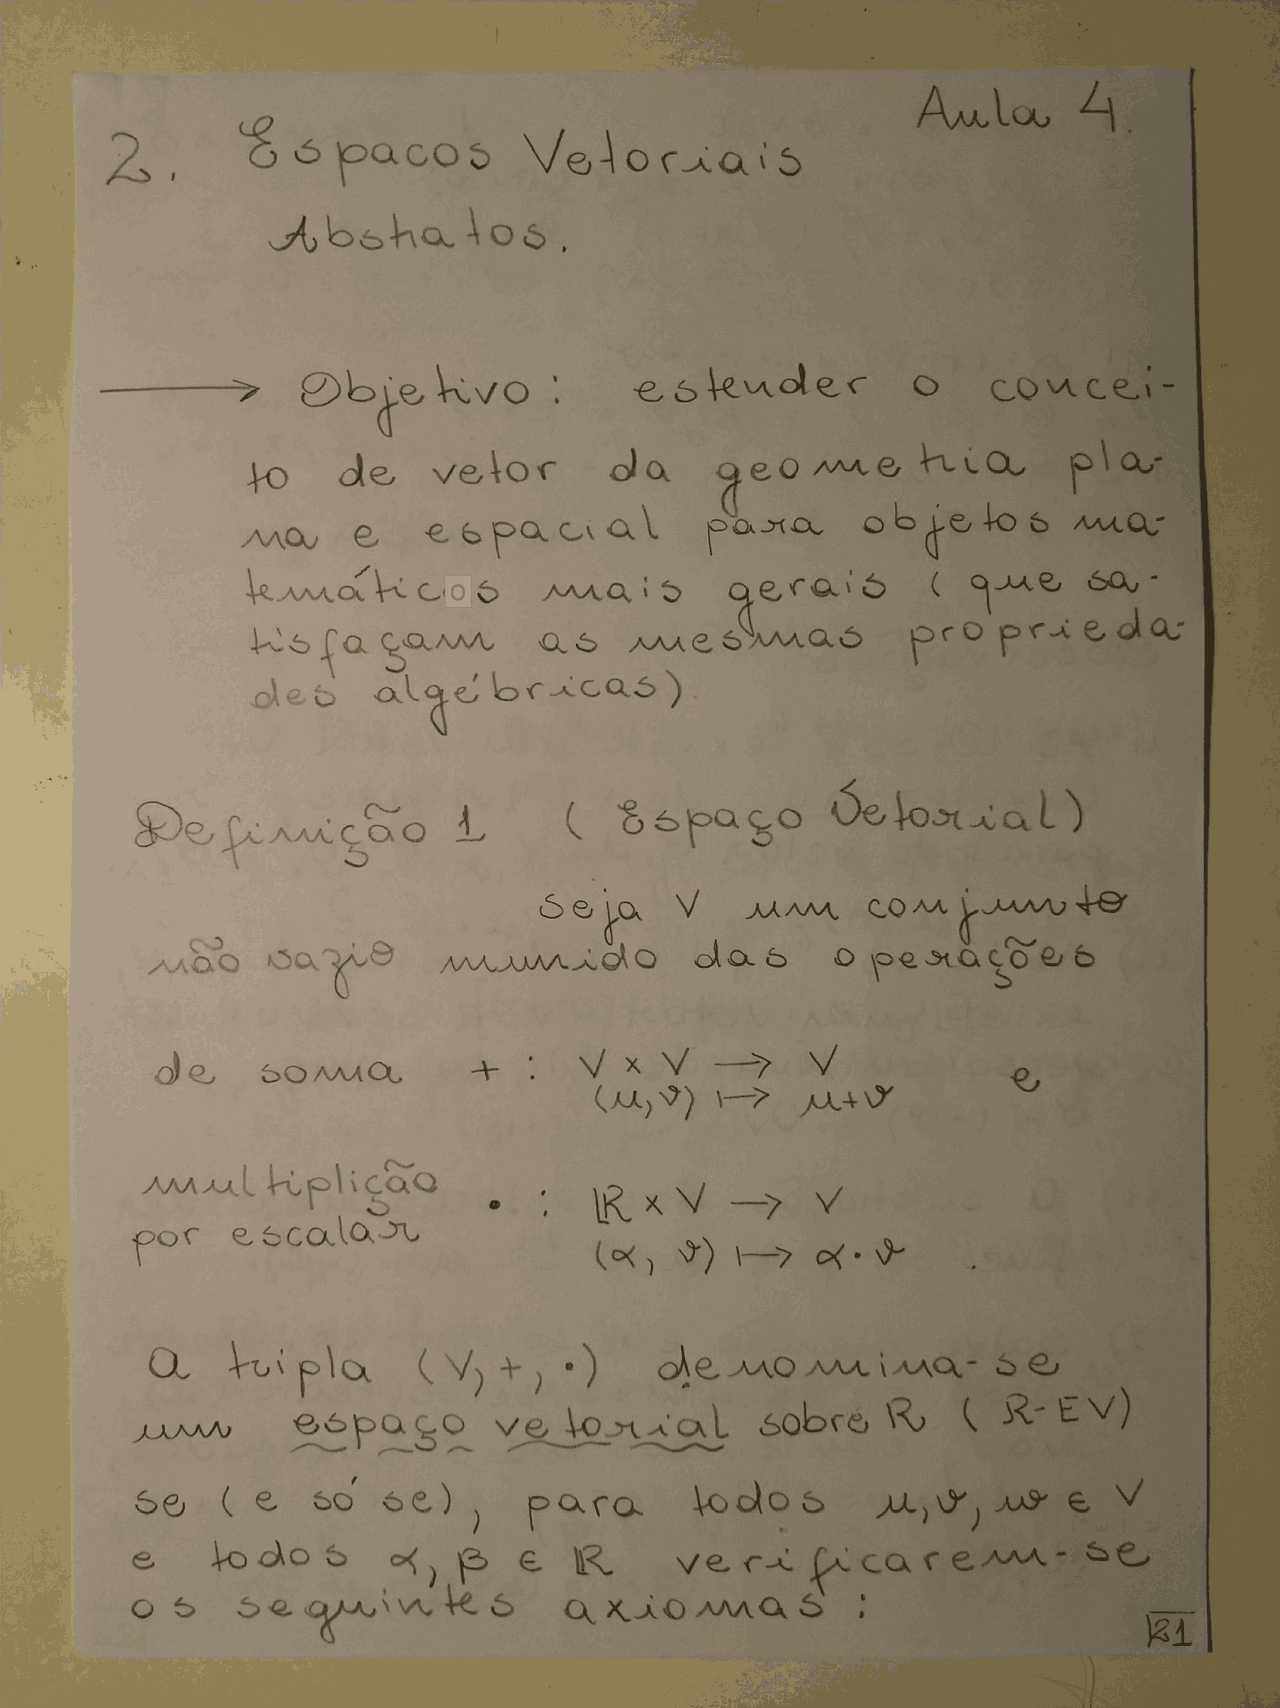 Aula 4.
2. Espacos Vetoriais
Abstratos.
⟶ Objetivo: estender o concei-
to de vetor da geometria pla-
na e espacial para objetos ma-
temáticos mais gerais (que sa-
tisfaçam as mesmas proprieda-
des algébricas).
Definição 1 (Espaço Vetorial)
seja V um conjunto
não vazio munido das operações
de soma + : V x V → V e
(u,v) ↦ u+v
multiplição • : ℝ x V → V
por escalar (α, v) ↦ α·v .
A tripla (V, +, •) denomina-se
um espaço vetorial sobre R (R-EV)
se (e só se), para todos u, v, w ∈ V
e todos α, β ∈ ℝ verificarem-se
os seguintes axiomas:
21